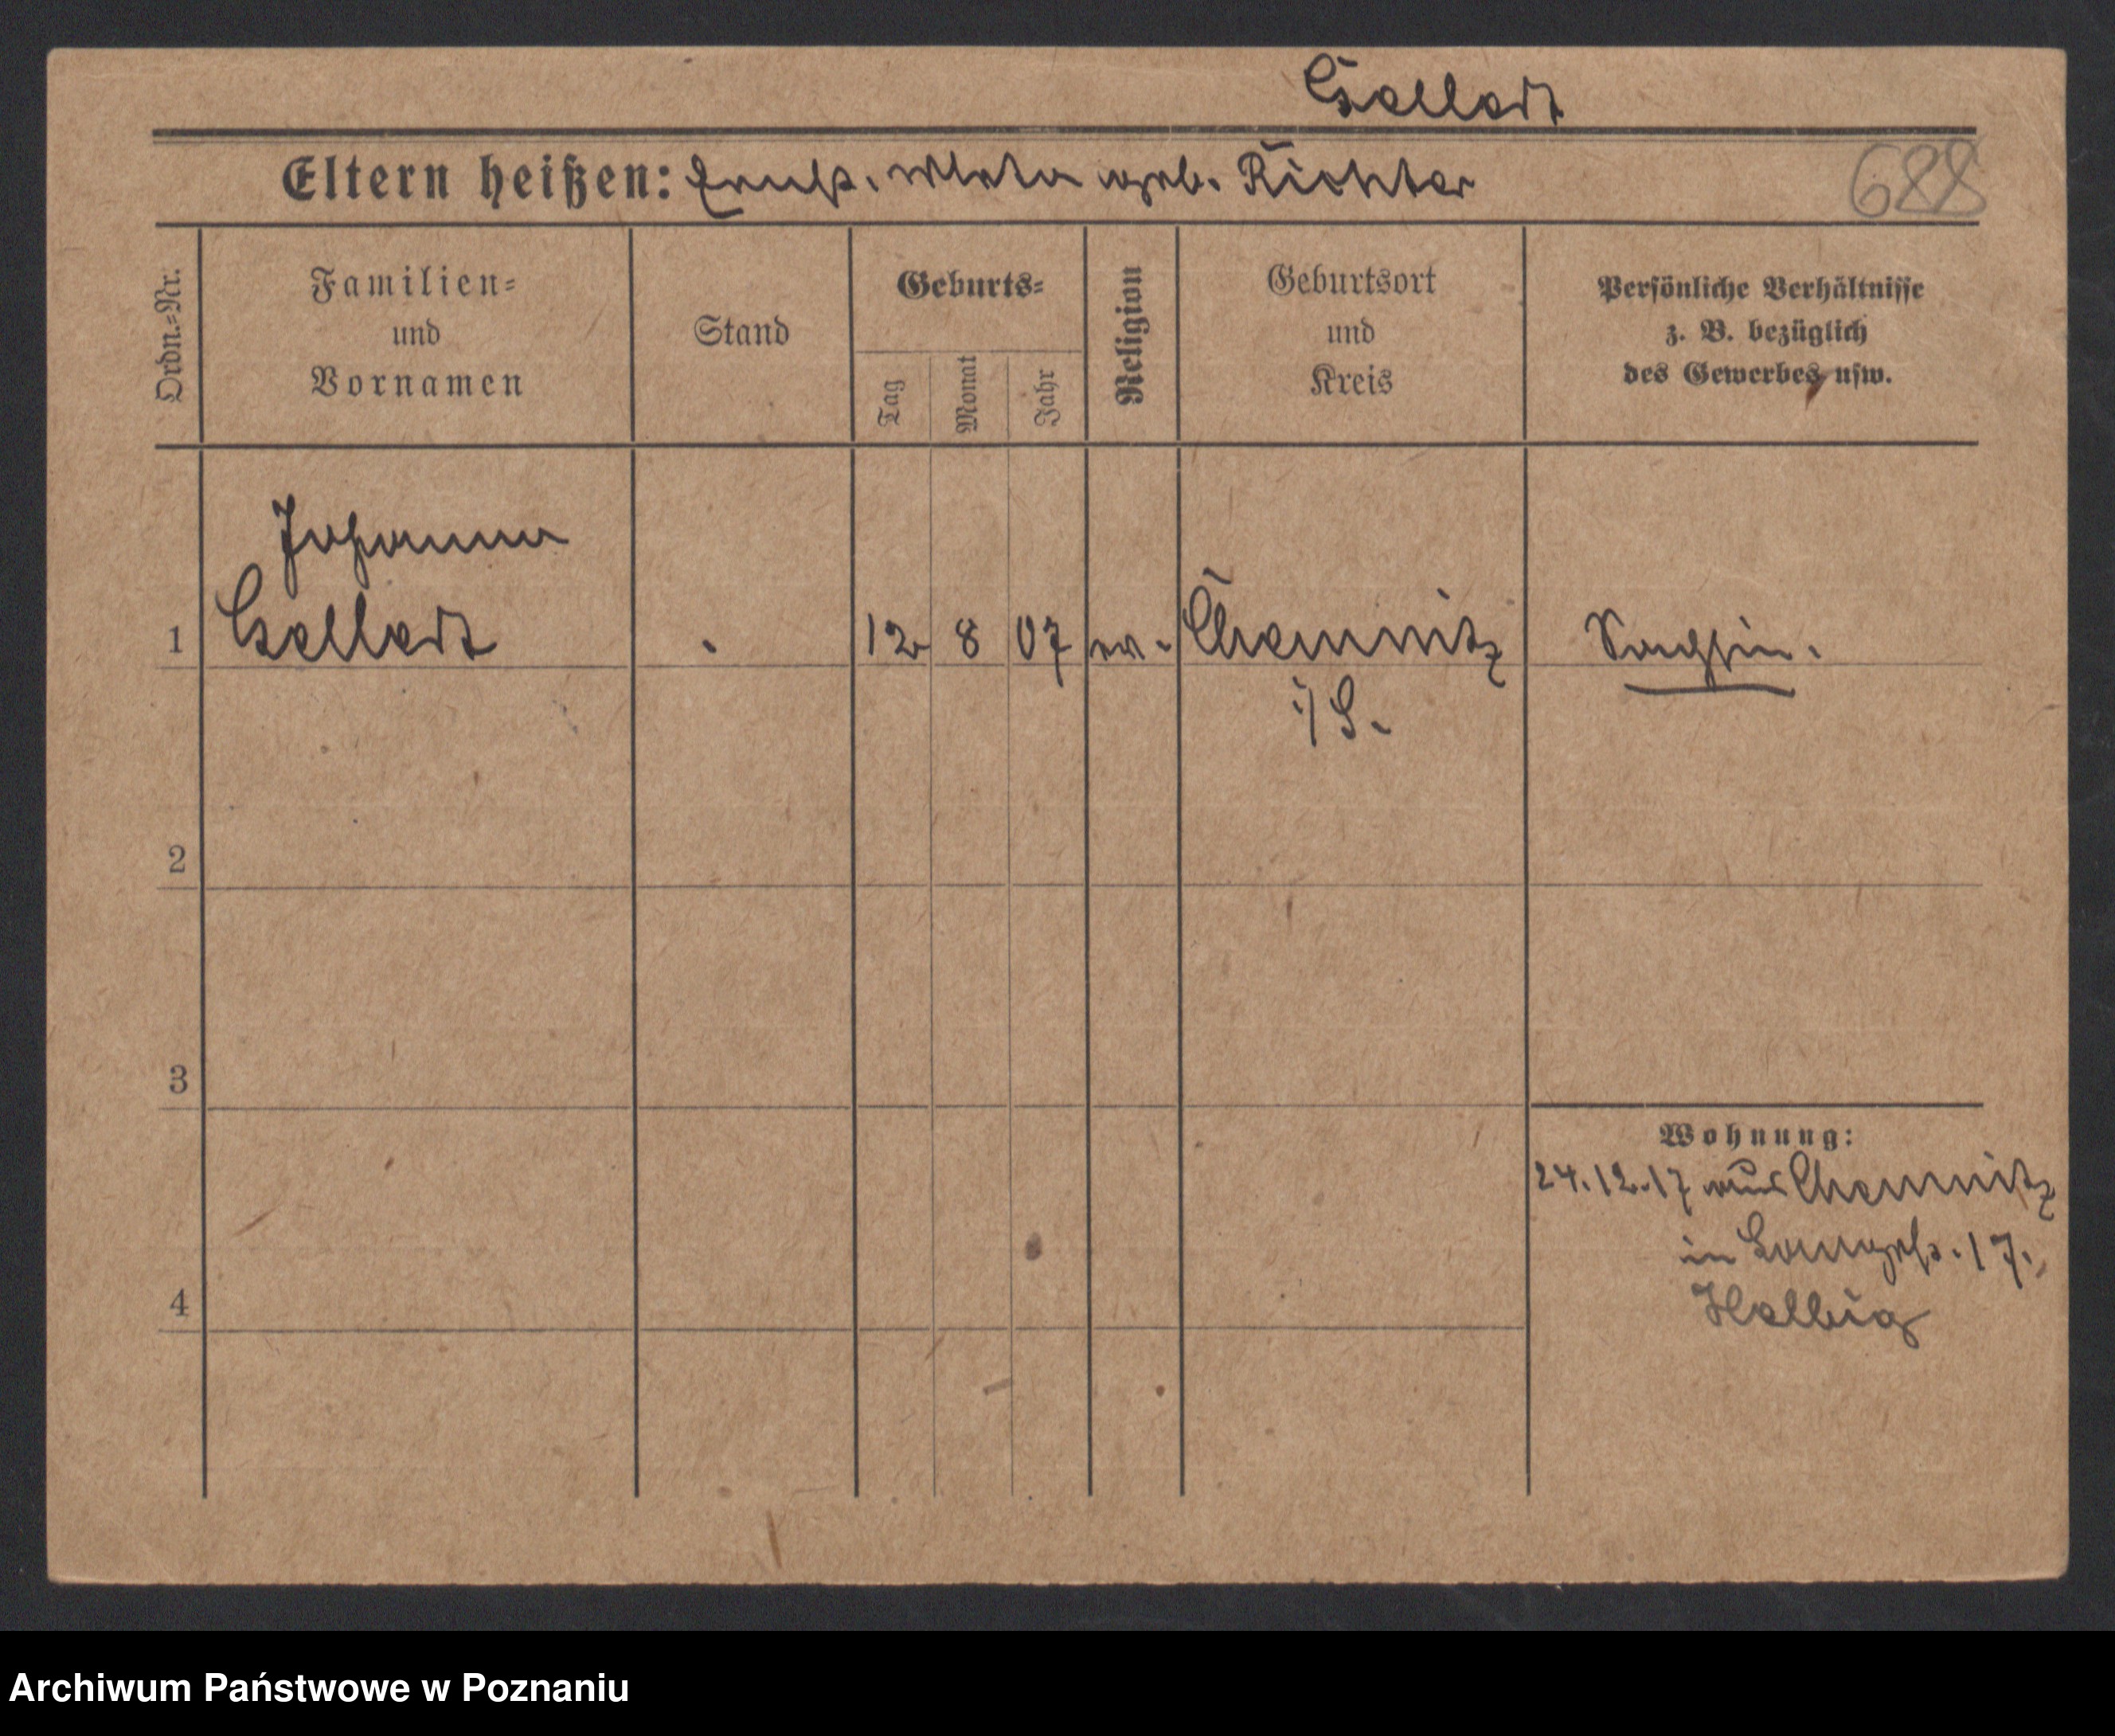 Gellert
Eltern heißen: Ernst. Meta geb. Richter
688
Ordn.-Nr.
Familien-
und
Vornamen
Stand
Geburts-
Tag
Monat
Jahr
Religion
Geburtsort
und
Kreis
Persönliche Verhältnisse
z. B. bezüglich
des Gewerbes usw.
Johanna
1 Gellert 12 8 07 ev. Chemnitz Sächsin.
i/S.
2
3
4
Wohnung:
24.12.17 aus Chemnitz
in Langestr. 17.
Helbig
Archiwum Państwowe w Poznaniu